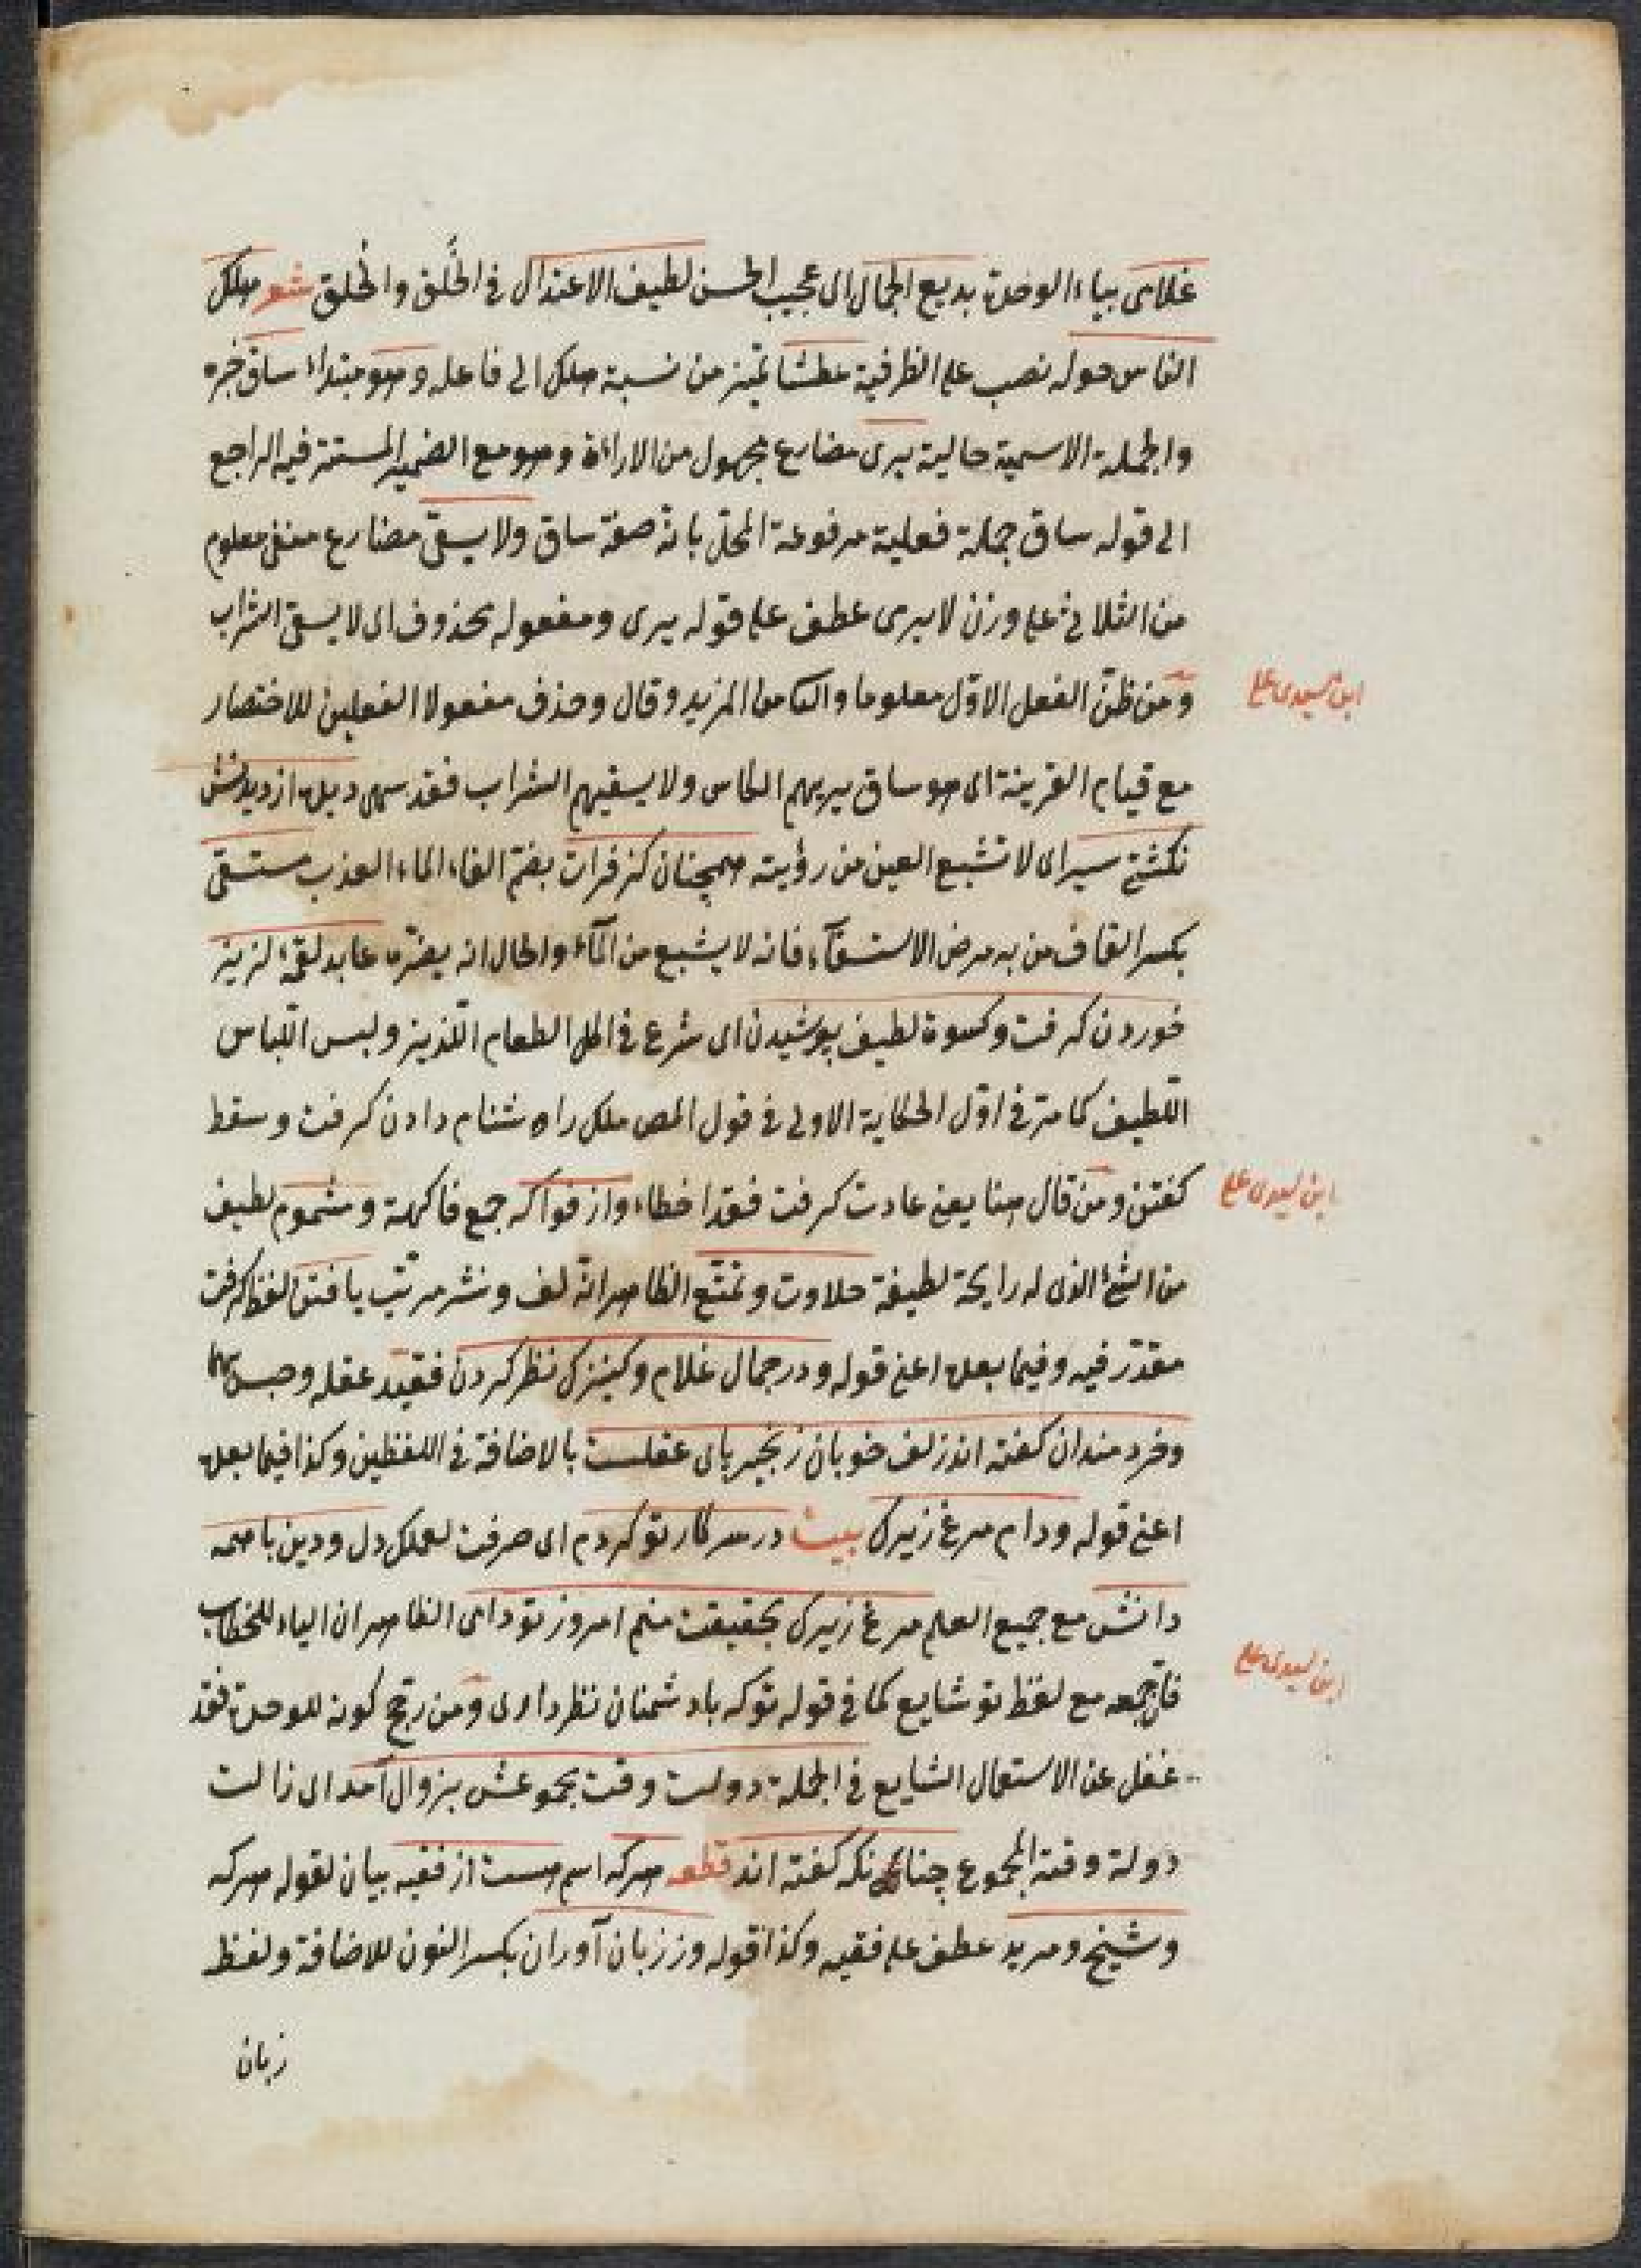 غلامى بياء الوحدة بديع الجمال اى عجيب الحسن لطيف الاعتدال فى الخَلق والخُلق شعر هلك
الناس حوله نصب على الظرفية عطشا تميز من نسبة هلك الى فاعله وهو مبتداء ساق خبره
والجملة الاسمية حالية يرى مضارع مجهول من الاراءة وهو مع الضمير المستتر فيه الراجع
الى قوله ساق جملة فعلية مرفوعة المحلّ بانه صفة ساق ولا يسقى مضارع منفى معلوم
من الثلاثى على وزن لا يرمى عطف على قوله يرى ومفعوله محذوف اى لا يسقى الشراب
ومن ظنّ الفعل الاوّل معلوما والثامن المزيد وقال وحذف مفعولا الفعلين للاختصار
ابن سيدى على
مع قيام القرينة اى هو ساق يريهم الكاس ولا يسقيهم الشراب فقد سهى ديده از ديدنش
نكشتى سير اى لا تشبع العين من رؤيته همچنان كز فرات بضم الفاء الماء العذب مستسقى
بكسر القاف من به مرض الاستسقآء فانه لا يشبع من المآء والحال انه يضرّه عابد لقمهٔ لزيز
خوردن كرفت وكسوة لطيف پوشيدن اى شرع فى اكل الطعام اللّذيذ ولبس اللّباس
اللّطيف كما مرّ فى اوّل الحكاية الاولى فى قول المص ملك راه شنام دادن كرفت وسقط
كفتن ومن قال هنا يعنى عادت كرفت فقد اخطاء واز فواكه جمع فاكهة ومشموم لطيف
ابن سيدى على
من الشئ الذى له رايحة لطيفة حلاوت وتمتّع الظاهر انه لف ونشر مرتّب يافتن لفظ كرفت
مقدّر فيه وفيما بعده اعنى قوله ودر جمال غلام وكنيزك نظر كردن فقيّد عقله وحبس بهما
وخردمندان كفته اند زلف خوبان زنجير پاى عقلست بالاضافة فى اللفظين وكذا فيما بعده
اعنى قوله ودام مرغ زيرك بيت در سر كار تو كردم اى صرفت لعملك دل ودين با همه
دانش مع جميع العلم مرغ زيرك بحقيقت منم امروز تو دامى الظاهر ان الياء للخطاب
فانّ جمعه مع لفظ تو شايع كما فى قوله تو كه با دشمنان نظر دارى ومن رجّح كونه للوحدة فقد
ابن سيدى على
غفل عن الاستعمال الشايع فى الجملة دولت وقت مجموعش بزوال آمد اى زالت
دولة وقته المجموع چنانكه كفته اند قطعه هركه اسم هست از فقيه بيان لقوله هركه
وشيخ ومريد عطف على فقيه وكذا قوله وز زبان آوران بكسر النون للاضافة ولفظ
زبان